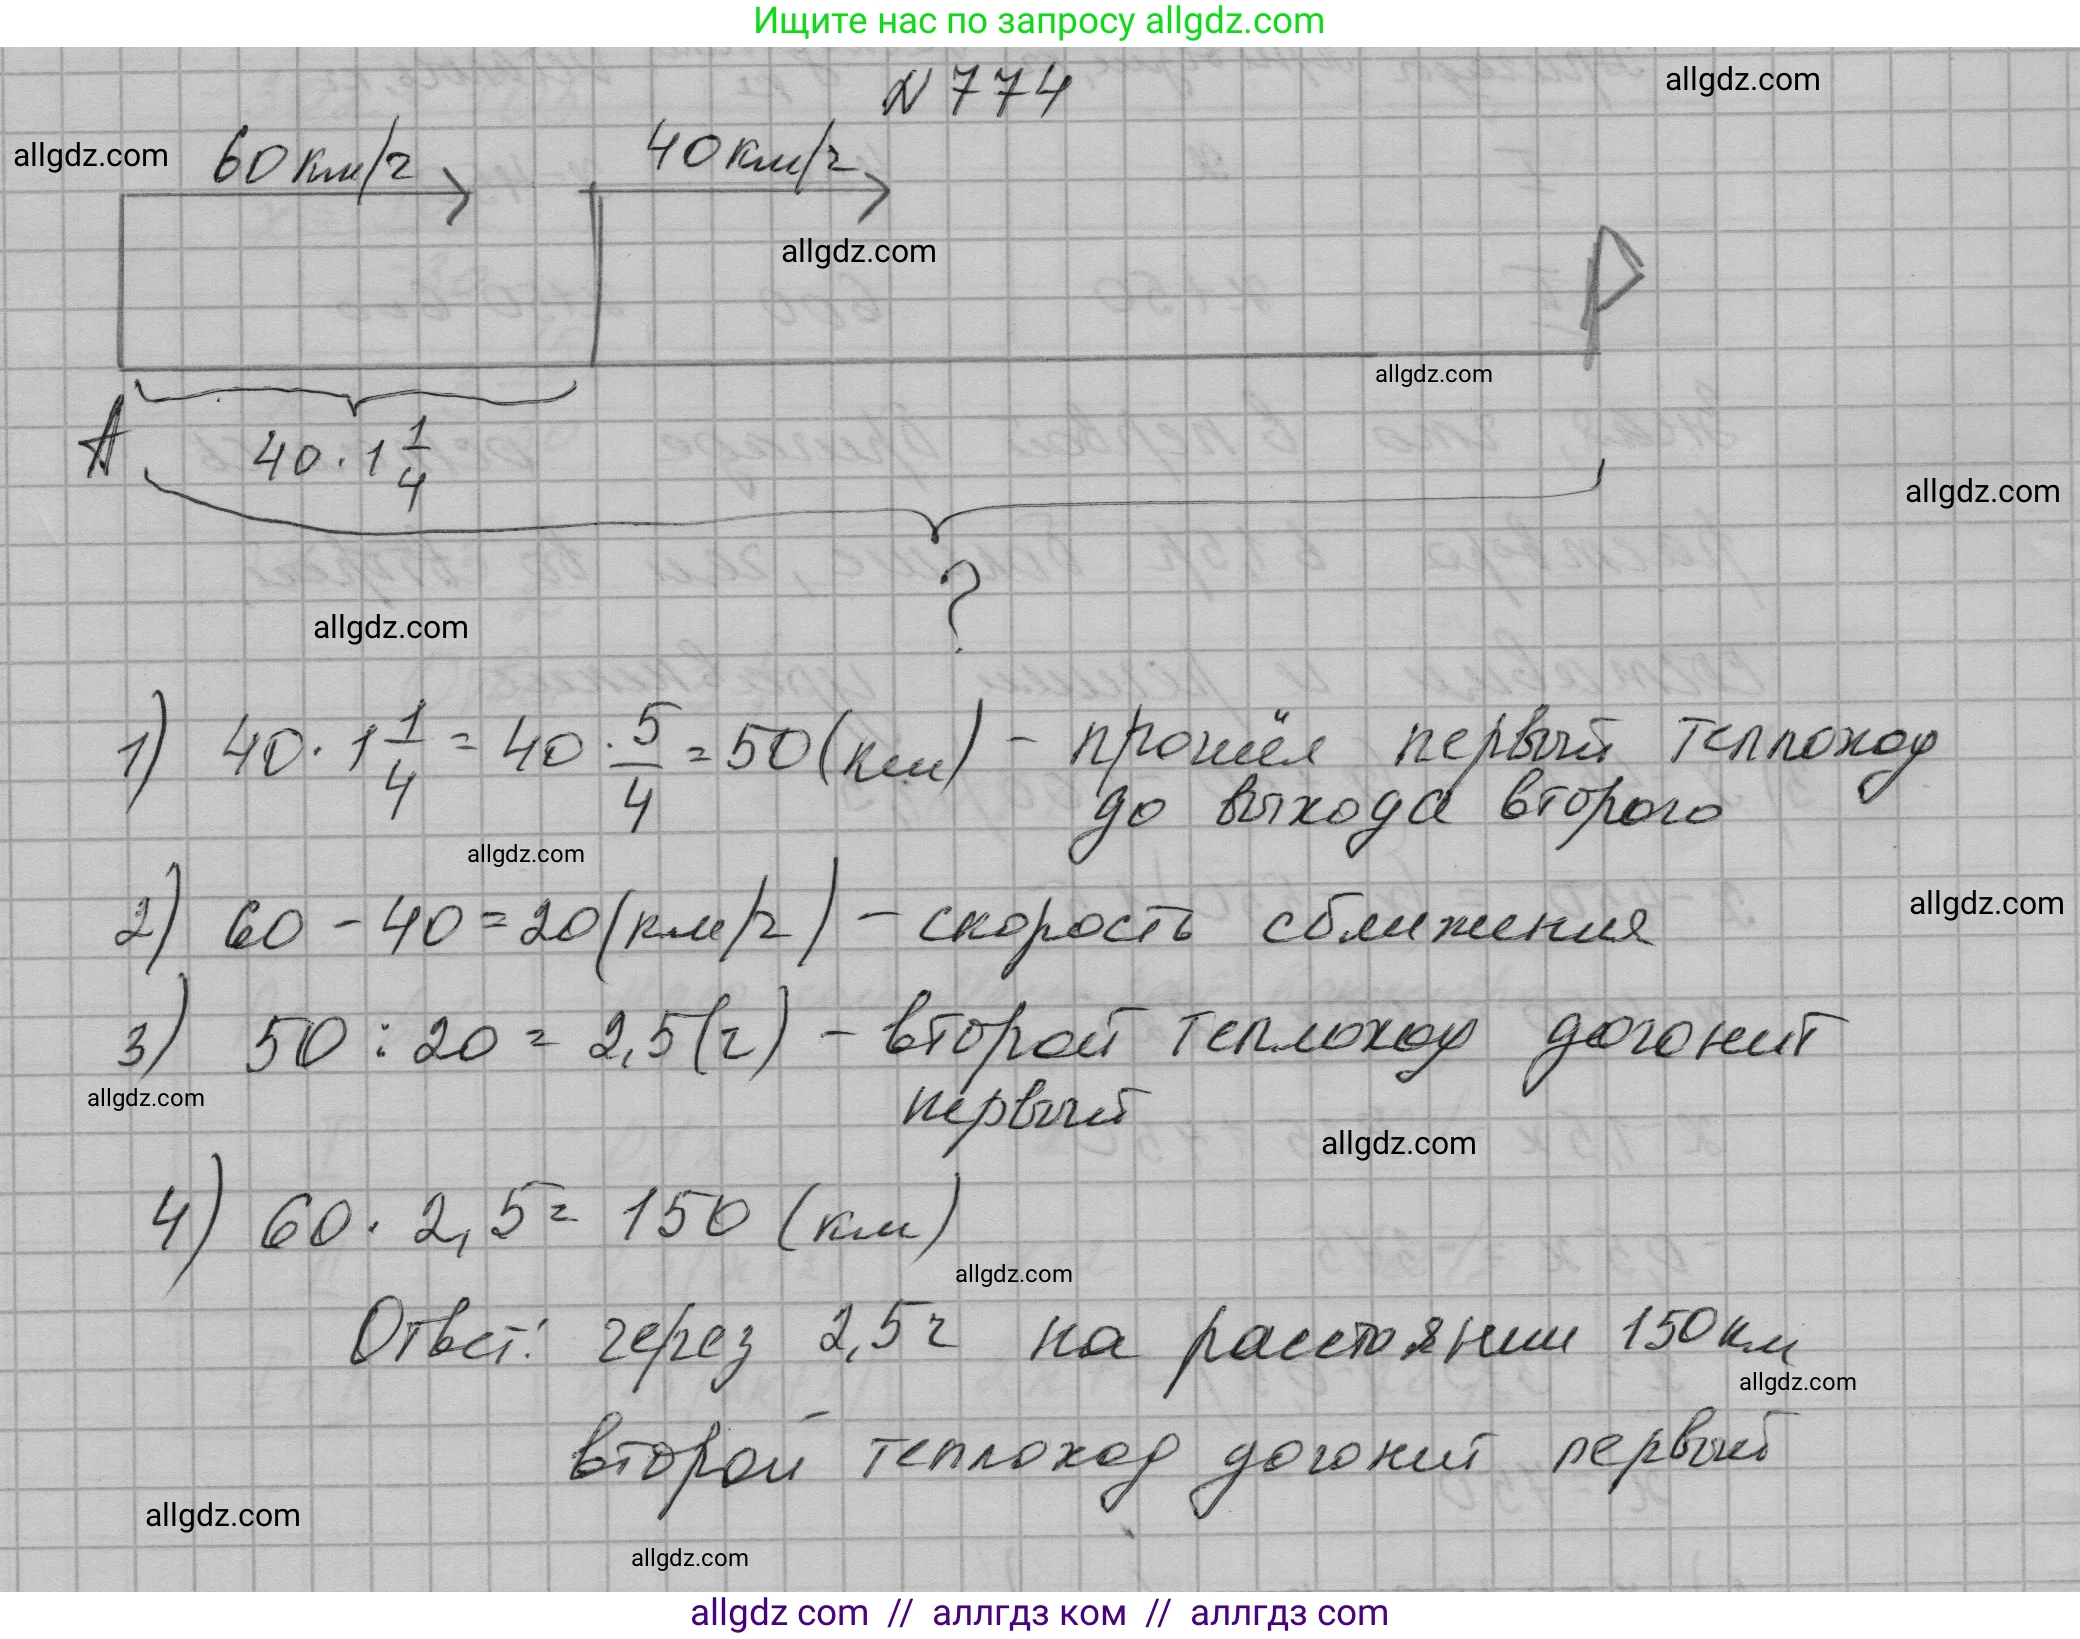 Ищите нас по запросу allgdz.com
N774
allgdz.com
allgdz.com 60км/ч 40км/ч
allgdz.com
allgdz.com
А 40·1 1/4
allgdz.com
?
allgdz.com
1) 40·1 1/4 = 40·5/4 = 50(км) - прошёл первый теплоход
до выхода второго
allgdz.com
2) 60 - 40 = 20(км/ч) - скорость сближения
allgdz.com
3) 50 : 20 = 2,5(ч) - второй теплоход догонит
первый
allgdz.com
allgdz.com
4) 60 · 2,5 = 150 (км)
allgdz.com
Ответ: через 2,5ч на расстоянии 150км
allgdz.com
второй теплоход догонит первый
allgdz.com
allgdz.com
allgdz com // аллгдз ком // аллгдз com